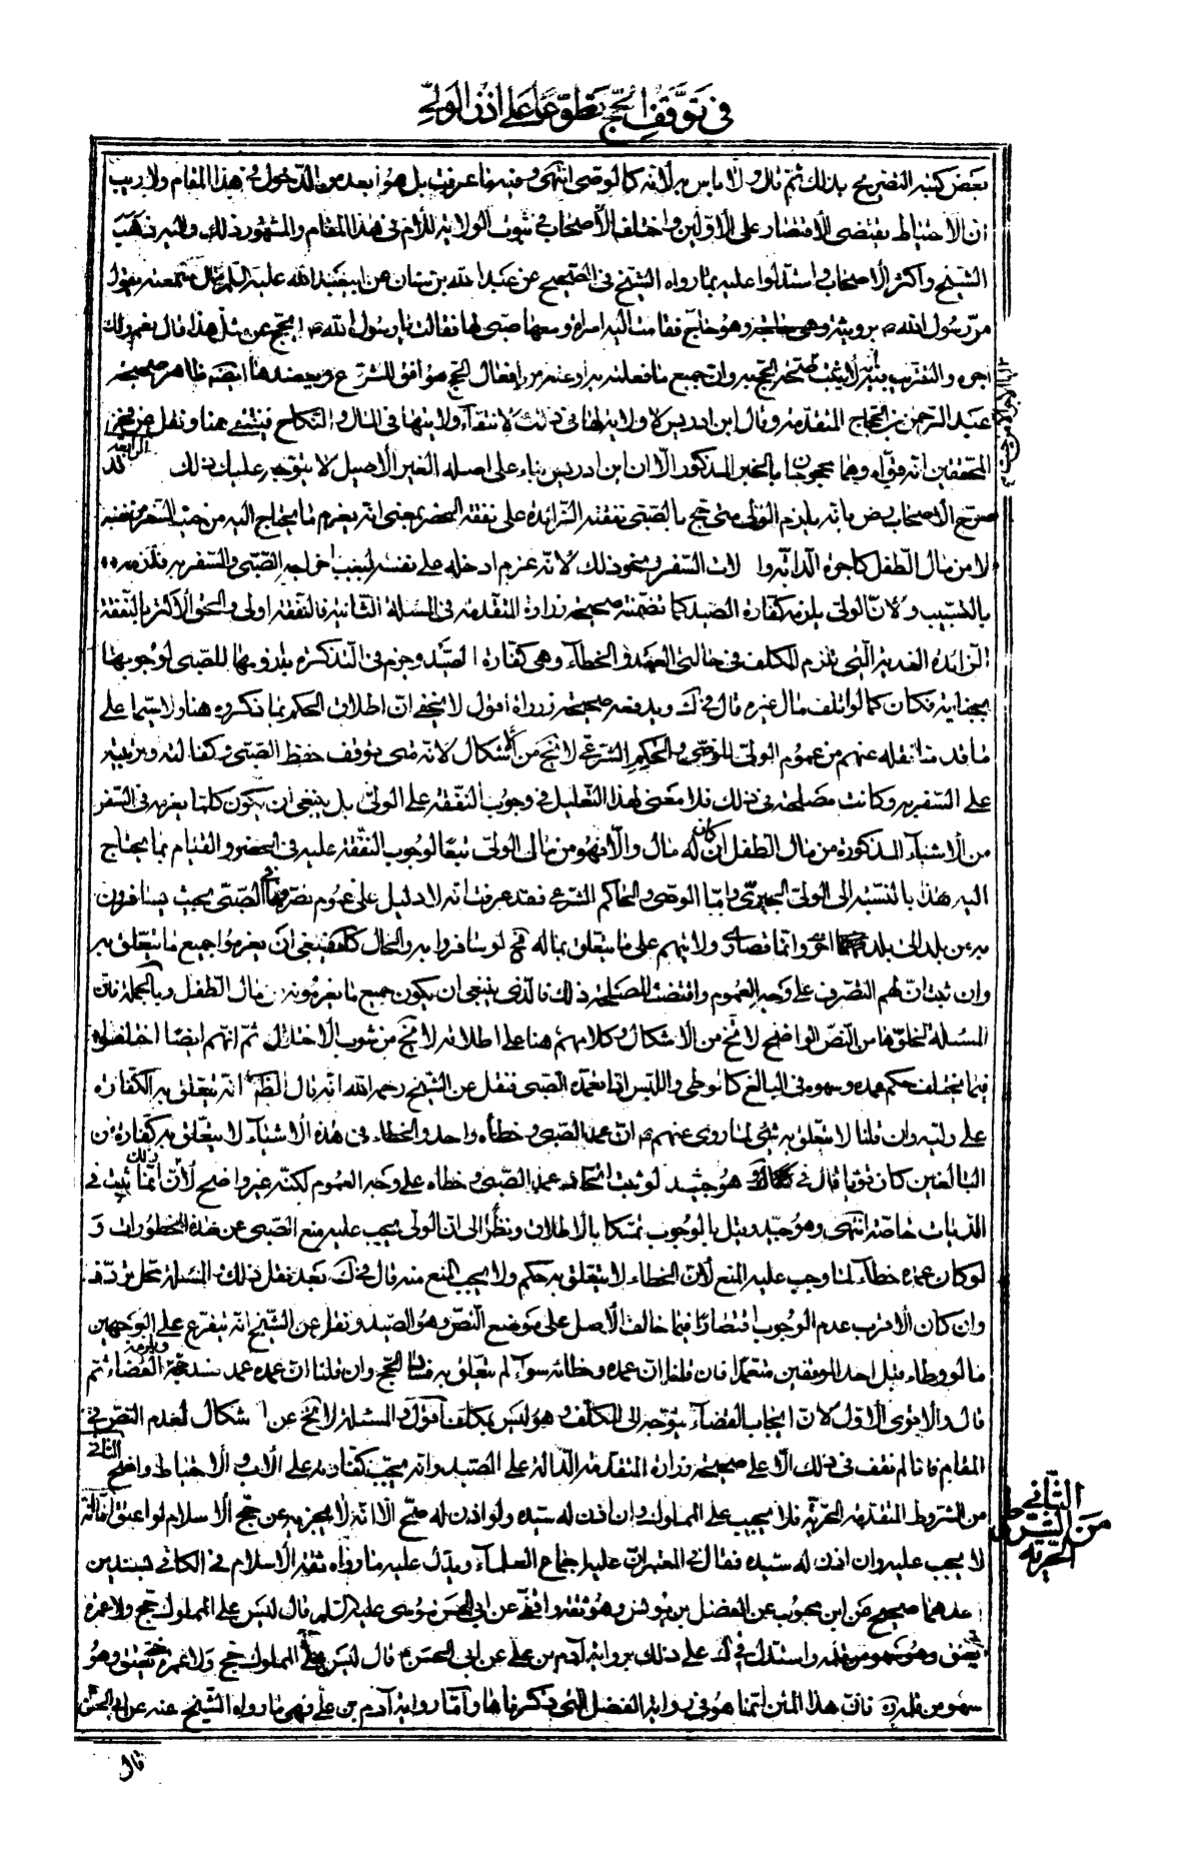 في توقف الحج تطوعا على اذن الولي
بعض كتبه التصريح بذلك ثم قال ولا باس به لانه كالوصي انتهى وفيه ما عرفت بل هو ابعد من الدخول في هذا المقام ولا ريب
ان الاحتياط يقتضي الاقتصار على الاولين واختلف الاصحاب في ثبوت الولاية للام في هذا المقام والمشهور ذلك واليه ذهب
الشيخ واكثر الاصحاب واستدلوا عليه بما رواه الشيخ في الصحيح عن عبد الله بن سنان عن ابي عبد الله عليه السلم قال سمعته يقول
مر رسول الله ص برويثة وهو حاج فقامت اليه امراة ومعها صبي لها فقالت يا رسول الله ص ايحج عن مثل هذا قال نعم ولك
اجره والتقريب فيه انه لا يثبت صحة الحج به وان جميع ما فعلته براد عنه من افعال الحج موافق للشرع ويعضدها ايضا ظاهر صحيحة
عبد الرحمن بن الحجاج المتقدمة وقال ابن ادريس لا ولاية لها في ذلك لانتفاء ولايتها في المال والنكاح فينتفي هنا ونقل عن فخر
المحققين انه قواه وهما محجوجان بالخبر المذكور الا ان ابن ادريس بناء على اصله الغير الاصيل لا يتوجه عليه ذلك الرابعة قد
صرح الاصحاب رض بانه يلزم الولي متى حج بالصبي نفقته الزائدة على نفقة الحضر بمعنى انه يغرم ما يحتاج اليه من حيث السفر من نفسه
لا من مال الطفل كاجرة الدابة والات السفر ونحو ذلك لانه غرم ادخله على نفسه لسبب اخراجه الصبي والسفر به فلزمه
بالتسبيب ولان الولي يلزمه كفارة الصيد كما تضمنته صحيحة زرارة المتقدمة في المسئلة الثانية فالنفقة اولى والحق الاكثر بالنفقة
الزائدة الفدية التي تلزم المكلف في حالتي العمد والخطاء وهي كفارة الصيد وجزم في التذكرة بلزومها للصبي لوجوبها
بجنايته فكان كما لو اتلف مال غيره قال في ك ويدفعه صحيحة زرارة اقول لا يخفى ان اطلاق الحكم بما ذكروه هنا ولا سيما على
ما قدمنا نقله عنهم من عموم الولي للوصي والحاكم الشرعي لا يخ من اشكال لانه متى توقف حفظ الصبي وكفالته وتربيته
على السفر به وكانت مصلحته في ذلك فلا معنى لهذا التعليل في وجوب النفقة على الولي بل ينبغي ان يكون كلما يغرمه في السفر
من الاشياء المذكورة من مال الطفل ان كان له مال والا فهو من مال الولي تبعا لوجوب النفقة عليه في الحضر والقيام بما يحتاج
اليه هذا بالنسبة الى الولي الجبري واما الوصي والحاكم الشرعي فقد عرفت انه لا دليل على عموم تصرفهما في الصبي بحيث يسافرون
به من بلد الى بلد اخرى وانما قصارى ولايتهم على ما يتعلق بماله فح لو سافروا به والحال كك فينبغي ان يغرموا جميع ما يتعلق به
وان ثبت ان لهم التصرف على وجه العموم واقتضت المصلحة ذلك فالذي ينبغي ان يكون جميع ما يغرمونه من مال الطفل وبالجملة فان
المسئلة لخلوها من النص الواضح لا تخ من الاشكال وكلامهم هنا على اطلاقه لا يخ من شوب الاختلال ثم انهم ايضا اختلفوا
فيما يختلف حكم عمده وسهوه في البالغ كالوطي واللبس اذا تعمده الصبي فنقل عن الشيخ رحمه الله انه قال الظ انه يتعلق به الكفارة
على وليه وان قلنا لا يتعلق به شئ لما روي عنهم ع ان عمد الصبي وخطأه واحد والخطاء في هذه الاشياء لا يتعلق به كفارة من
البالغين كان قويا قال في ك وهو جيد لو ثبت اتحاد عمد الصبي وخطاه على وجه العموم لكنه غير واضح لان ذلك انما ثبت في
الديات خاصة انتهى وهو جيد وقيل بالوجوب تمسكا بالاطلاق ونظرا الى ان الولي يجب عليه منع الصبي عن هذه المحظورات و
لو كان عمده خطاء لما وجب عليه المنع لان الخطاء لا يتعلق به حكم ولا يجب المنع منه قال في ك بعد نقل ذلك المسئلة محل تردد
وان كان الاقرب عدم الوجوب اقتصارا فيما خالف الاصل على موضع النص وهو الصيد ونقل عن الشيخ انه يتفرع على الوجهين
ما لو وطاء قبل احد الموقفين متعمدا فان قلنا ان عمده وخطائه سواء لم يتعلق به فساد الحج وان قلنا ان عمده عمد فسد حجه ويلزمه القضاء ثم
قال والاقوى الاول لان ايجاب القضاء يتوجه الى المكلف وهو ليس بمكلف اقول والمسئلة لا تخ عن اشكال لعدم النص في
المقام فانا لم نقف في ذلك الا على صحيحة زرارة المتقدمة الدالة على الصيد وانه يجب كفارته على الاب والاحتياط واضح الثاني
من الشروط المتقدمة الحرية فلا يجب على المملوك وان اذن له سيده ولو اذن له صح الا انه لا يجزيه عن حج الاسلام لو اعتق اما انه
لا يجب عليه وان اذن له سيده فقال في المعتبر ان عليه اجماع العلماء ويدل عليه ما رواه ثقة الاسلام في الكافي بسندين
احدهما صحيح عن ابن محبوب عن الفضل بن يونس وهو ثقة واقفي عن ابي الحسن موسى عليه السلم قال ليس على المملوك حج ولا عمرة
حتى يعتق وهو سهو من قلمه واستدل في ك على ذلك برواية آدم بن علي عن ابي الحسن ع قال ليس على المملوك حج ولا عمرة حتى يعتق وهو
سهو من قلمه ره فان هذا المتن انما هو في رواية الفضل التي ذكرناها واما رواية آدم بن علي فهي ما رواه الشيخ عنه عن ابي الحسن
الثاني
من الشروط
الحرية
قال